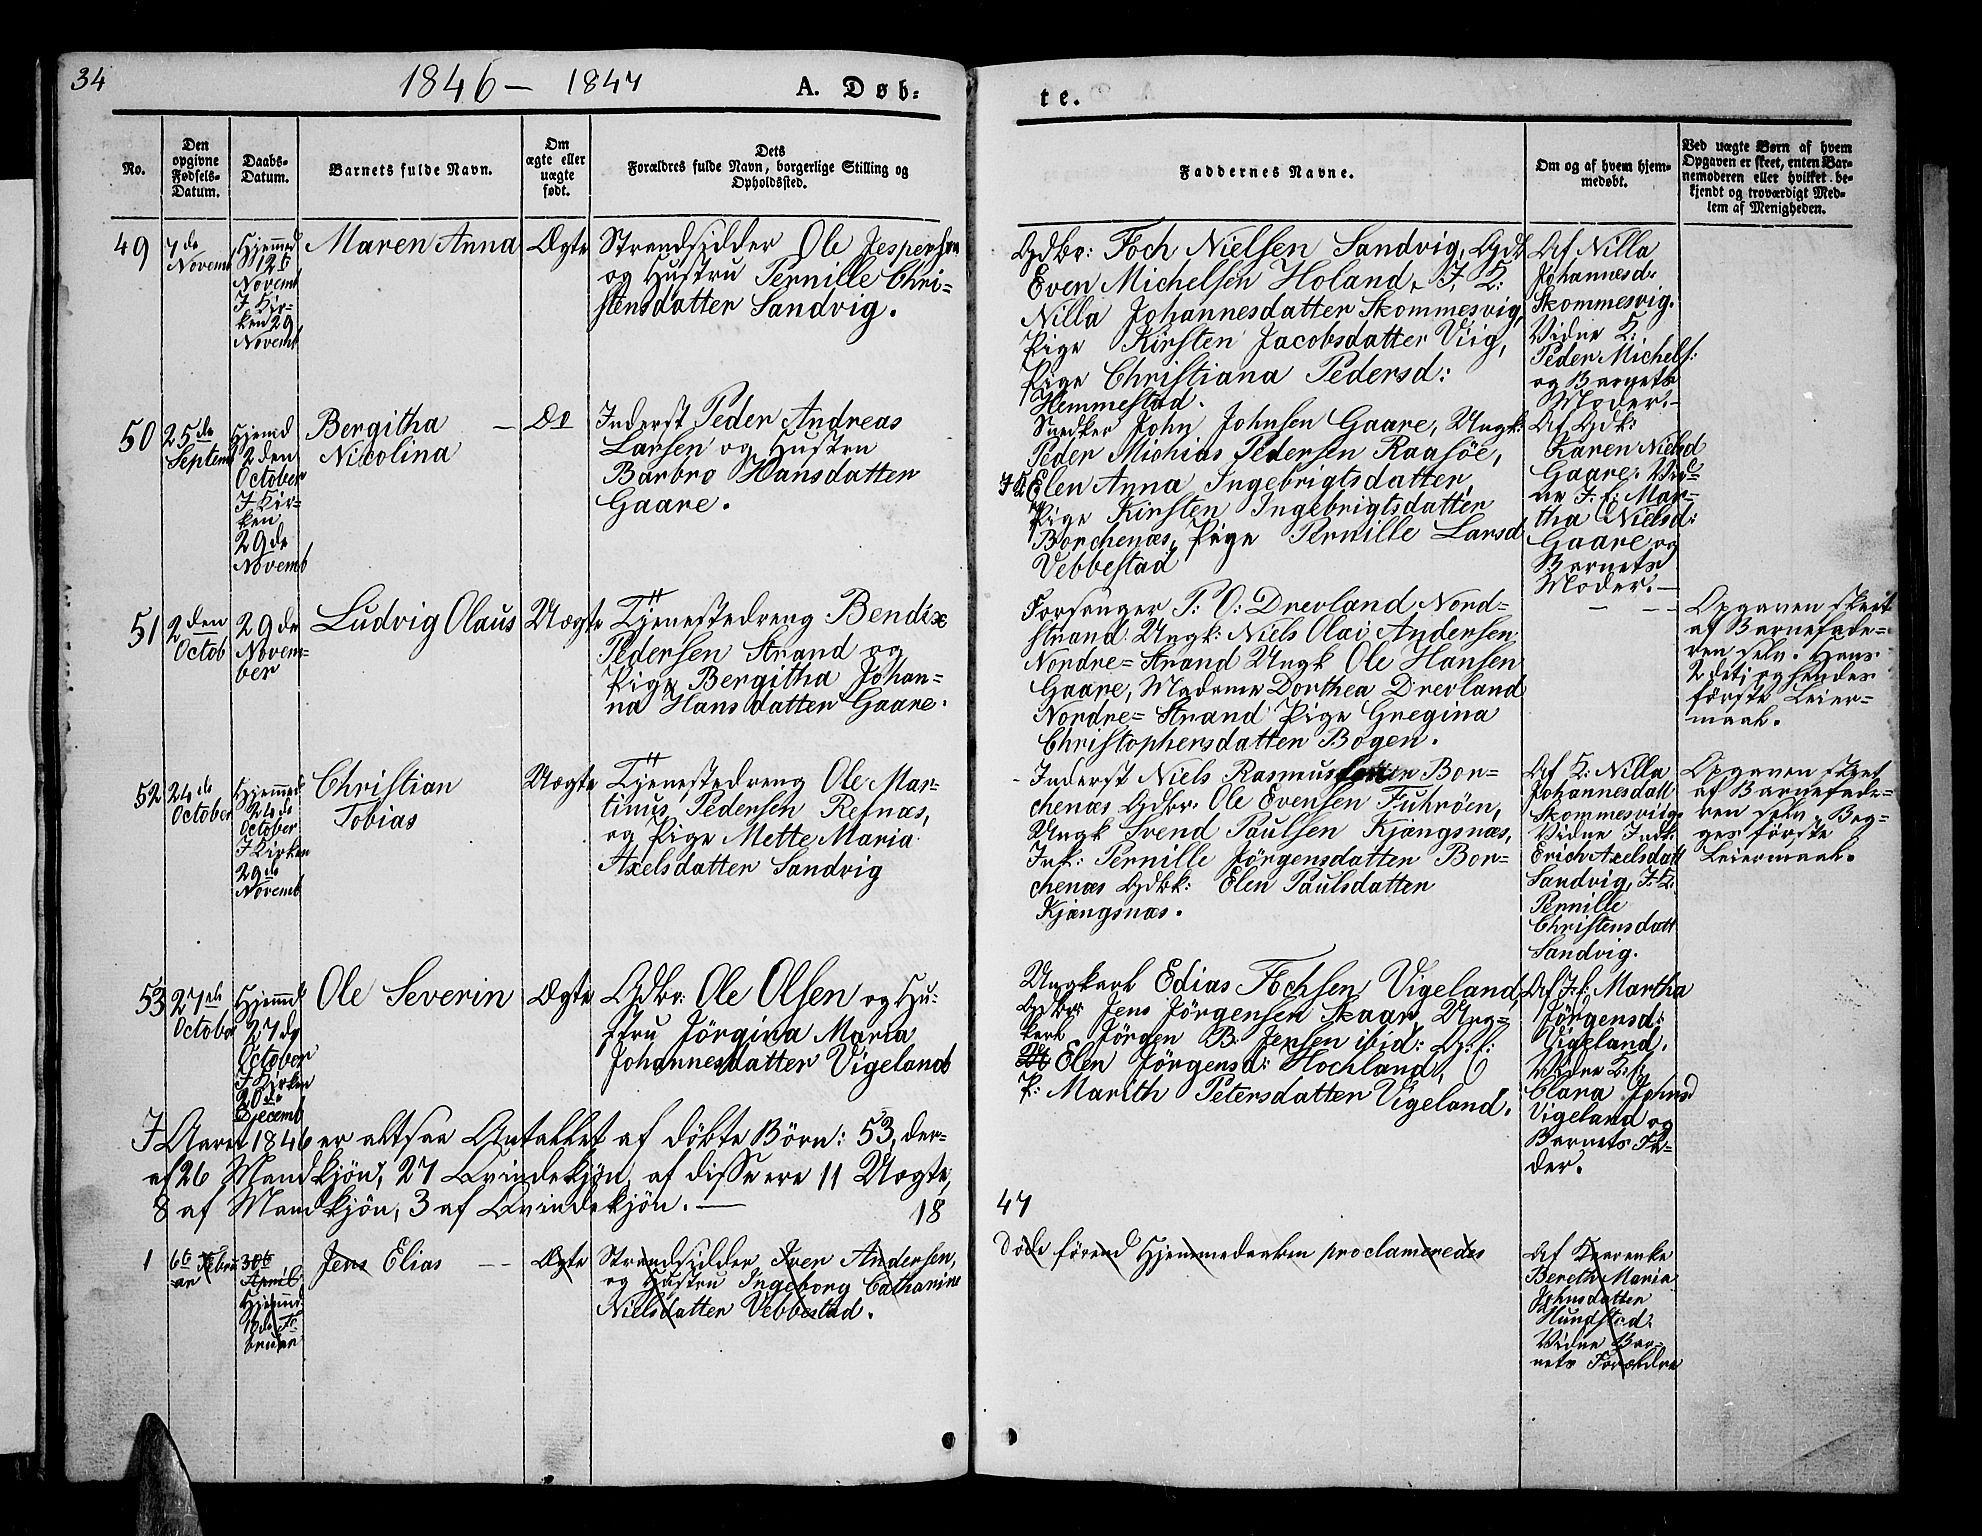 34
1846 — 1847
A. Døb-
te.
No.
Den
opgivne
Fødsels-
Datum.
Daabs-
Datum.
Barnets fulde Navn.
Om
ægte eller
uægte
født.
Dets
Forældres fulde Navn, borgerlige Stilling og
Opholdssted.
Faddernes Navne.
Om og af hvem hjem-
medøbt.
Ved uægte Børn af hvem
Opgaven er skeet, enten Bar-
nemoderen eller hvilket be-
kjendt og troværdigt Med-
lem af Menigheden.
49
7de
Novemb
Hjemmed
12t
Novemb
I Kir-
ken 29
Novemb
Maren Anna
Ægte
Strandsidder Ole Jespersen
og Hustru Pernille Chri-
stensdatter Sandvig.
Gdbr: Foch Nielsen Sandvig, Gdb
Even Michelsen Holand, I. K:
Nilla Johannesdatter Skommesvig,
Pige Kirsten Jacobsdatter Viig,
Pige Christiana Pedersd:
Hemmestad.
Af Nilla
Johannesd:
Skommesvig.
Vidne K:
Peder Michels:
og Barnets
Moder. —
50
25de
Septemb
Hjemd
2den
October
I Kir-
ken
29de
Novemb
Bergitha —
Nicolina
Do
Inderst Peder Andreas
Larsen og Hustru
Barbro Hansdatter
Gaare.
Snedker John Johnsen Gaare, Ungk:
Peder Michias Pedersen Raasöe,
I K Elen Anna Ingebrigtsdatter,
Pige Kirsten Ingebrigtsdatter
Borchenæs, Pige Pernille Larsd
Vebbestad
Af Gdk:
Karen Nielsd
Gaare. Vid-
ne I. k: Mar-
tha Nielsd:
Gaare og
Barnets
Moder. —
51
2den
Octob
29de
Novem-
ber
Ludvig Olaus
Uægte
Tjenestedreng Bendix
Pedersen Strand og
Pige Bergitha Johan-
na Hansdatter Gaare.
Forsanger P: O: Drevland Nord-
strand. Ungk: Niels Olai Andersen
Nordre-Strand Ungk Ole Hansen
Gaare, Madame Dorthea Drevland
Nordre-Strand Pige Gregina
Christophersdatter Bogen.
— — —
Opgaven skeet
af Barnefade-
ren selv. Hans
2det; og hendes
förste Leier-
maal.
52
24de
October
Hjemmed
24de
October
I Kirken
29de
Novemb
Christian
Tobias
Uægte
Tjenestedreng Ole Mar-
tinus Pedersen Refnæs,
og Pige Mette Maria
Axelsdatter Sandvig
Inderst Niels Rasmussen Bor-
chenæs Gdbr: Ole Evensen Fuhröen,
Ungk Svend Paulsen Kjængsnæs,
Ink: Pernille Jörgensdatter Bor-
chenæs Gdbk: Elen Paulsdatter
Kjængsnæs.
Af K: Nilla
Johannesdatt
Skommesviig
Vidne Indk
Erich Axelsdatt
Sandvig, I. K:
Pernille
Christensdatt
Sandvig.
Opgaven skeet
af Barnefade-
ren selv, Beg-
ges förste
Leiermaal.
53
27de
October
Hjemmd
27de
October
I Kirken
20de
Decemb
Ole Severin
Ægte
Gdbr: Ole Olsen og Hu-
stru Jörgina Maria
Johannesdatter Vigeland
Ungkarl Edias Fochsen Vigeland,
Gdbr Jens Jörgensen Skaar, Ung-
karl Jörgen B. Jensen ibid: G: k:
Elen Jörgensd: Hochland,
P: Marith Petersdatter Vigeland.
Af I. k: Martha
Jörgensd:
Vigeland.
Vidne K: k:
Clara Johnsd
Vigeland og
Barnets Fa-
der.
I Aaret 1846 er altsaa Antallet af döbte Börn: 53, der-
af 26 Mandkjön, 27 Qvindekjön, af disse ere 11 Uægte,
8 af Mandkjön, 3 af Qvindekjön. —
18
47
1
6te Febru
ar
30te
April
Hjemmd
Fe
bruar
Jens Elias — —
Ægte
Strandsidder Iver Andersen,
og Hustru Ingeborg Catharine
Nielsdatter Vebbestad.
Döde förend Hjemmedaaben proclameredes
Af Kaarenke
Bereth Maria
Johnsdatter
Hundstad.
Vidne Bar-
nets Forældre